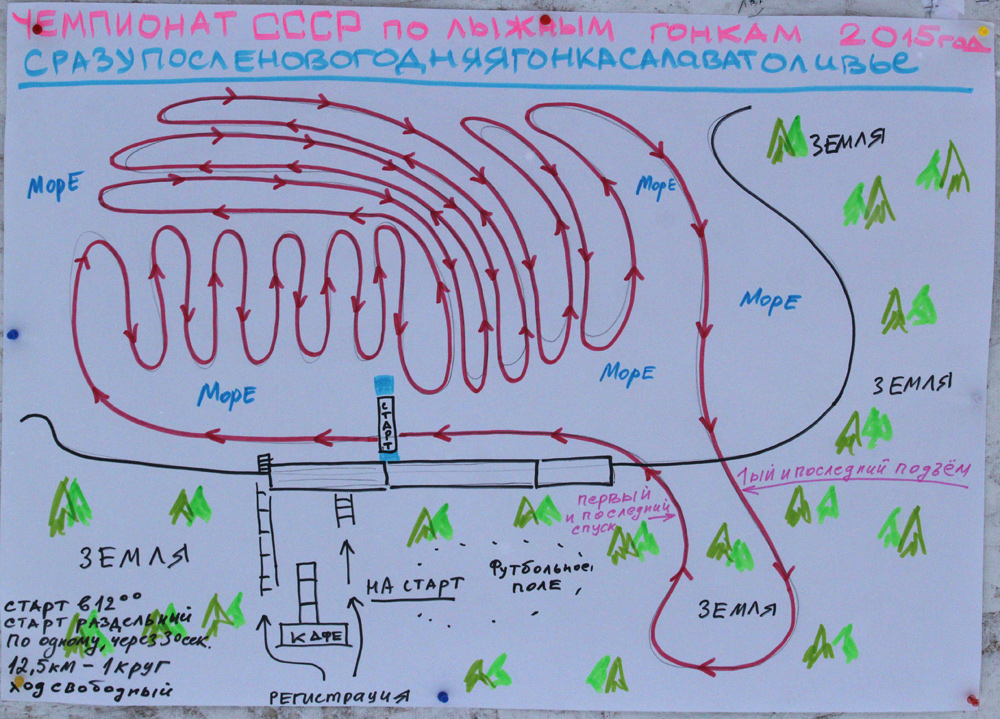 ЧЕМПИОНАТ СССР ПО ЛЫЖНЫМ ГОНКАМ 2015 год
СРАЗУПОСЛЕНОВОГОДНЯЯГОНКАСАЛАВАТОЛИВЬЕ
ЗЕМЛЯ
МОРЕ
МОРЕ
МОРЕ
МОРЕ
МОРЕ
ЗЕМЛЯ
СТАРТ
1ый и последний подзём
первый
и последний
спуск
ЗЕМЛЯ
Футбольное
ПОЛЕ
НА СТАРТ
ЗЕМЛЯ
КАФЕ
РЕГИСТРАЦИЯ
СТАРТ в 12⁰⁰
СТАРТ РАЗДЕЛЬНЫЙ
По одному, через 30 сек.
12,5 км – 1 круг
Ход свободный